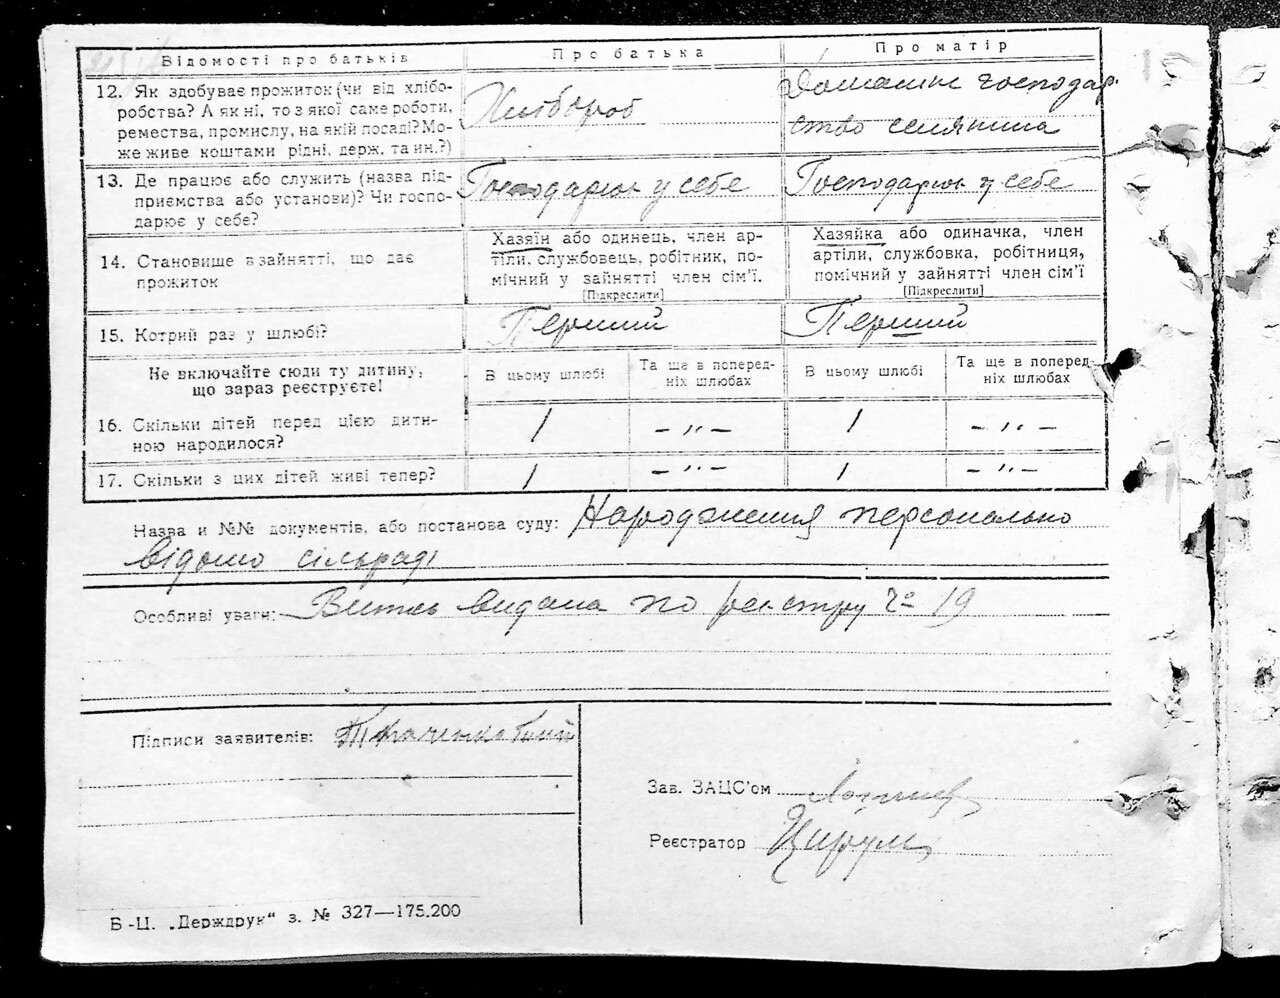 Відомості про батьків
Про батька
Про матір
12. Як здобуває прожиток (чи від хлібо-
робства? А як ні, то з якої саме роботи,
ремества, промислу, на якій посаді? Мо-
же живе коштами рідні, держ. та ин.?)
Хлібороб
Домашнє господар
ство селянина
13. Де працює або служить (назва під-
приємства або установи)? Чи госпо-
дарює у себе?
Господарює у себе
Господарює у себе
14. Становище в зайнятті, що дає
прожиток
Хазяїн або одинець, член ар-
тіли, службовець, робітник, по-
мічний у зайнятті член сім'ї.
[Підкреслити]
Хазяйка або одиначка, член
артіли, службовка, робітниця,
помічний у зайнятті член сім'ї
[Підкреслити]
15. Котрий раз у шлюбі?
Перший
Перший
Не включайте сюди ту дитину,
що зараз реєструєте!
В цьому шлюбі
Та ще в поперед-
ніх шлюбах
В цьому шлюбі
Та ще в поперед-
ніх шлюбах
16. Скільки дітей перед цією дити-
ною народилося?
1
- " -
1
- " -
17. Скільки з цих дітей живі тепер?
1
- " -
1
- " -
Назва и №№ документів, або постанова суду: Народження персонально
відомо сільраді
Особливі уваги: Витяг видана по реєстру № 19
Підписи заявителів: Ткаченко
Зав. ЗАЦС'ом
Реєстратор
Б-Ц. „Держдрук“ з. № 327—175.200